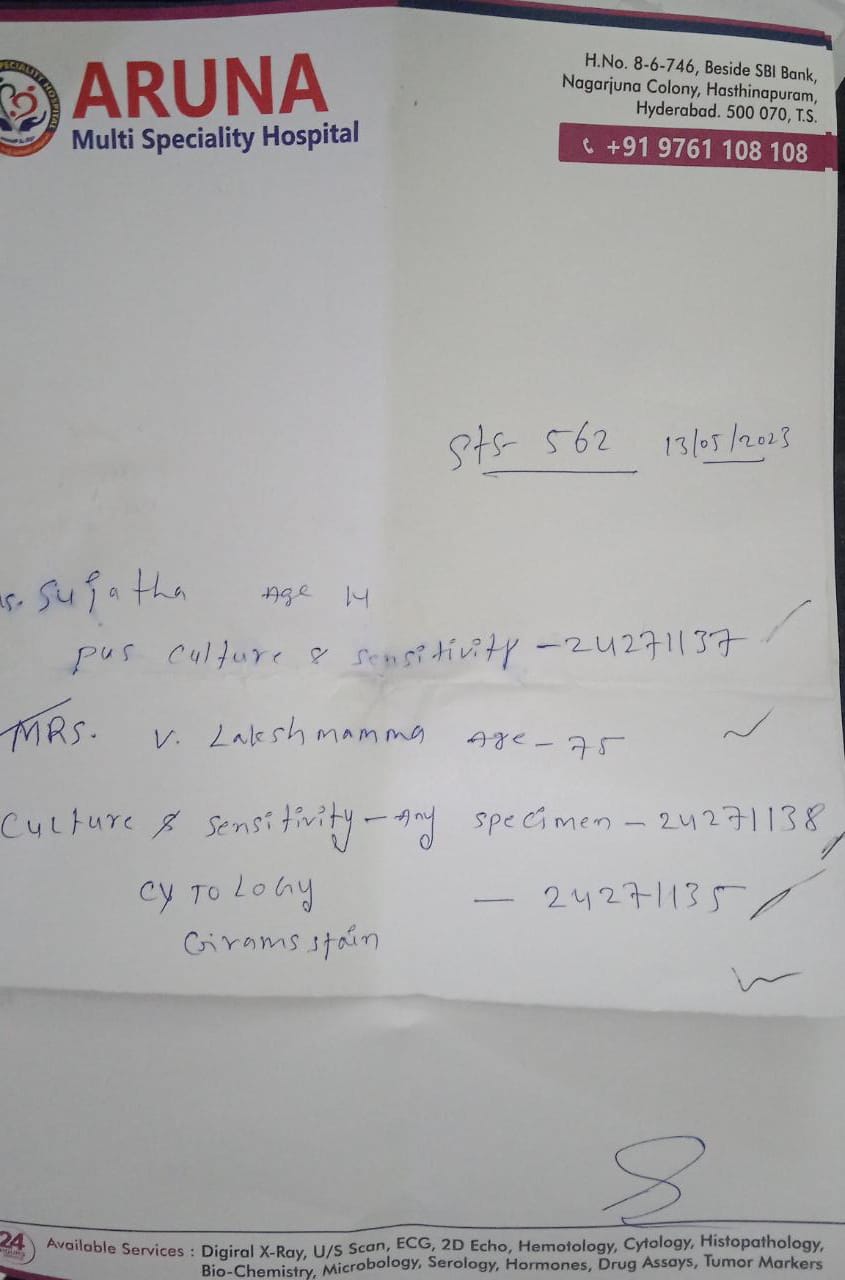 SPECIALITY HOSPITAL
ARUNA
Multi Speciality Hospital
H.No. 8-6-746, Beside SBI Bank,
Nagarjuna Colony, Hasthinapuram,
Hyderabad. 500 070, T.S.
+91 9761 108 108
Sts- 562 13/05/2023
s. Sujatha Age 14
pus culture & sensitivity - 24271137
MRS. V. Lakshmamma Age - 75
Culture & sensitivity - Any specimen - 24271138
CYTOLOGY - 24271135
Grams stain
24
Available Services : Digiral X-Ray, U/S Scan, ECG, 2D Echo, Hemotology, Cytology, Histopathology,
Bio-Chemistry, Microbology, Serology, Hormones, Drug Assays, Tumor Markers